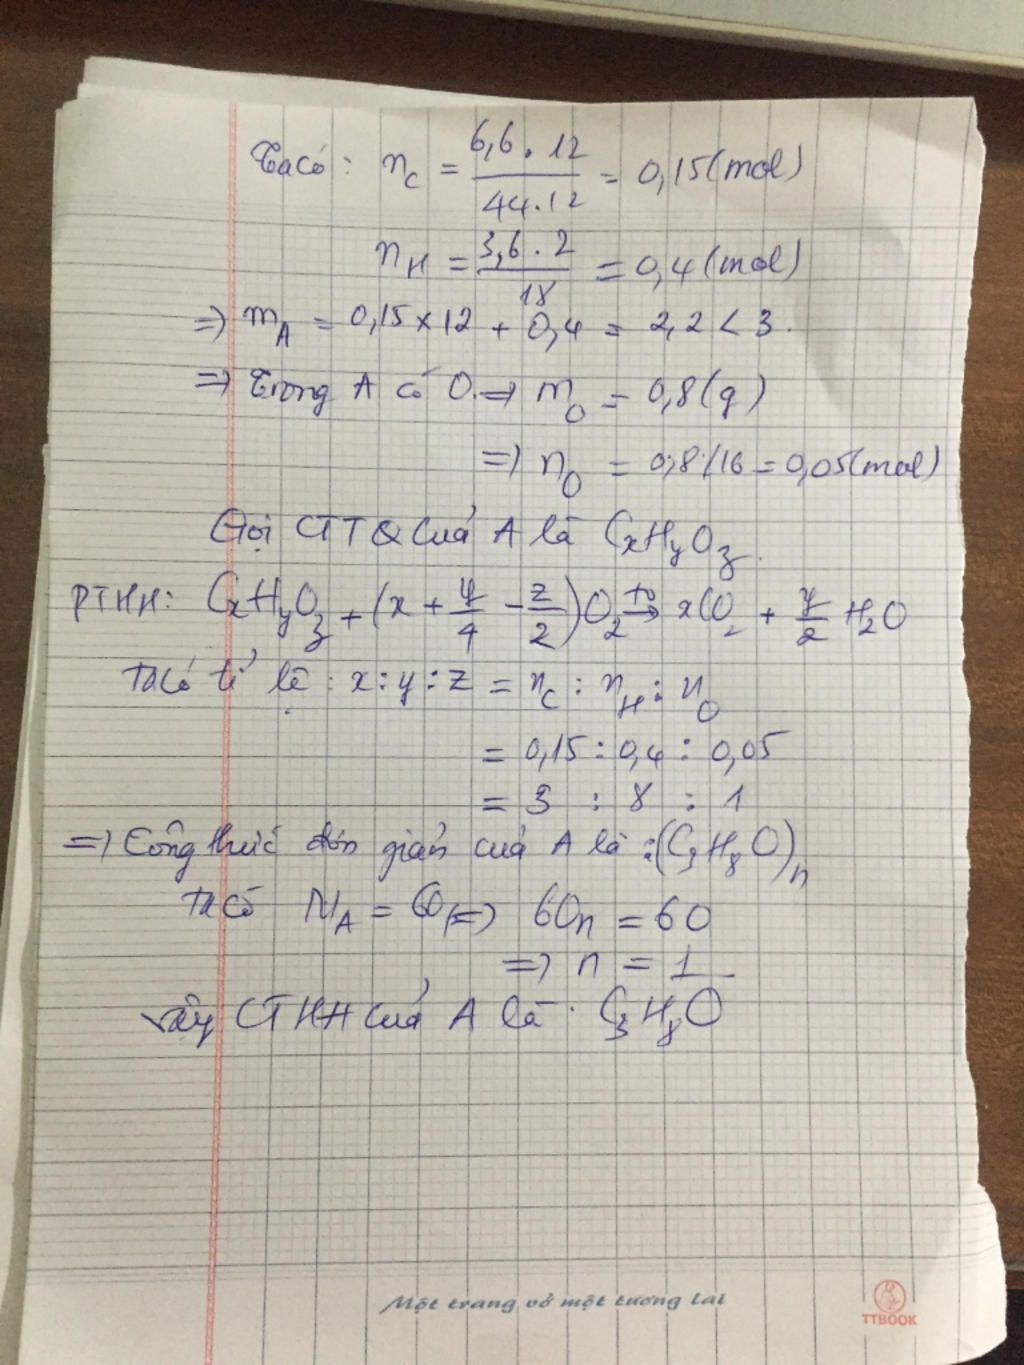 Ta có: n_C = (6,6 . 12)/(44.12) = 0,15 (mol)
n_H = (3,6 . 2)/18 = 0,4 (mol)
=> m_A = 0,15 x 12 + 0,4 = 2,2 < 3.
=> Trong A có O. => m_O = 0,8 (g)
=> n_O = 0,8/16 = 0,05 (mol)
Gọi CTTQ của A là CxHyOz.
PTHH: CxHyOz + (x + y/4 - z/2)O2 -t°-> xCO2 + y/2 H2O
Ta có tỉ lệ: x : y : z = n_C : n_H : n_O
= 0,15 : 0,4 : 0,05
= 3 : 8 : 1
=> Công thức đơn giản của A là : (C3H8O)n
Ta có M_A = 60 (=) 60n = 60
=> n = 1
Vậy CTHH của A là : C3H8O
Một trang vở một tương lai
TTBOOK